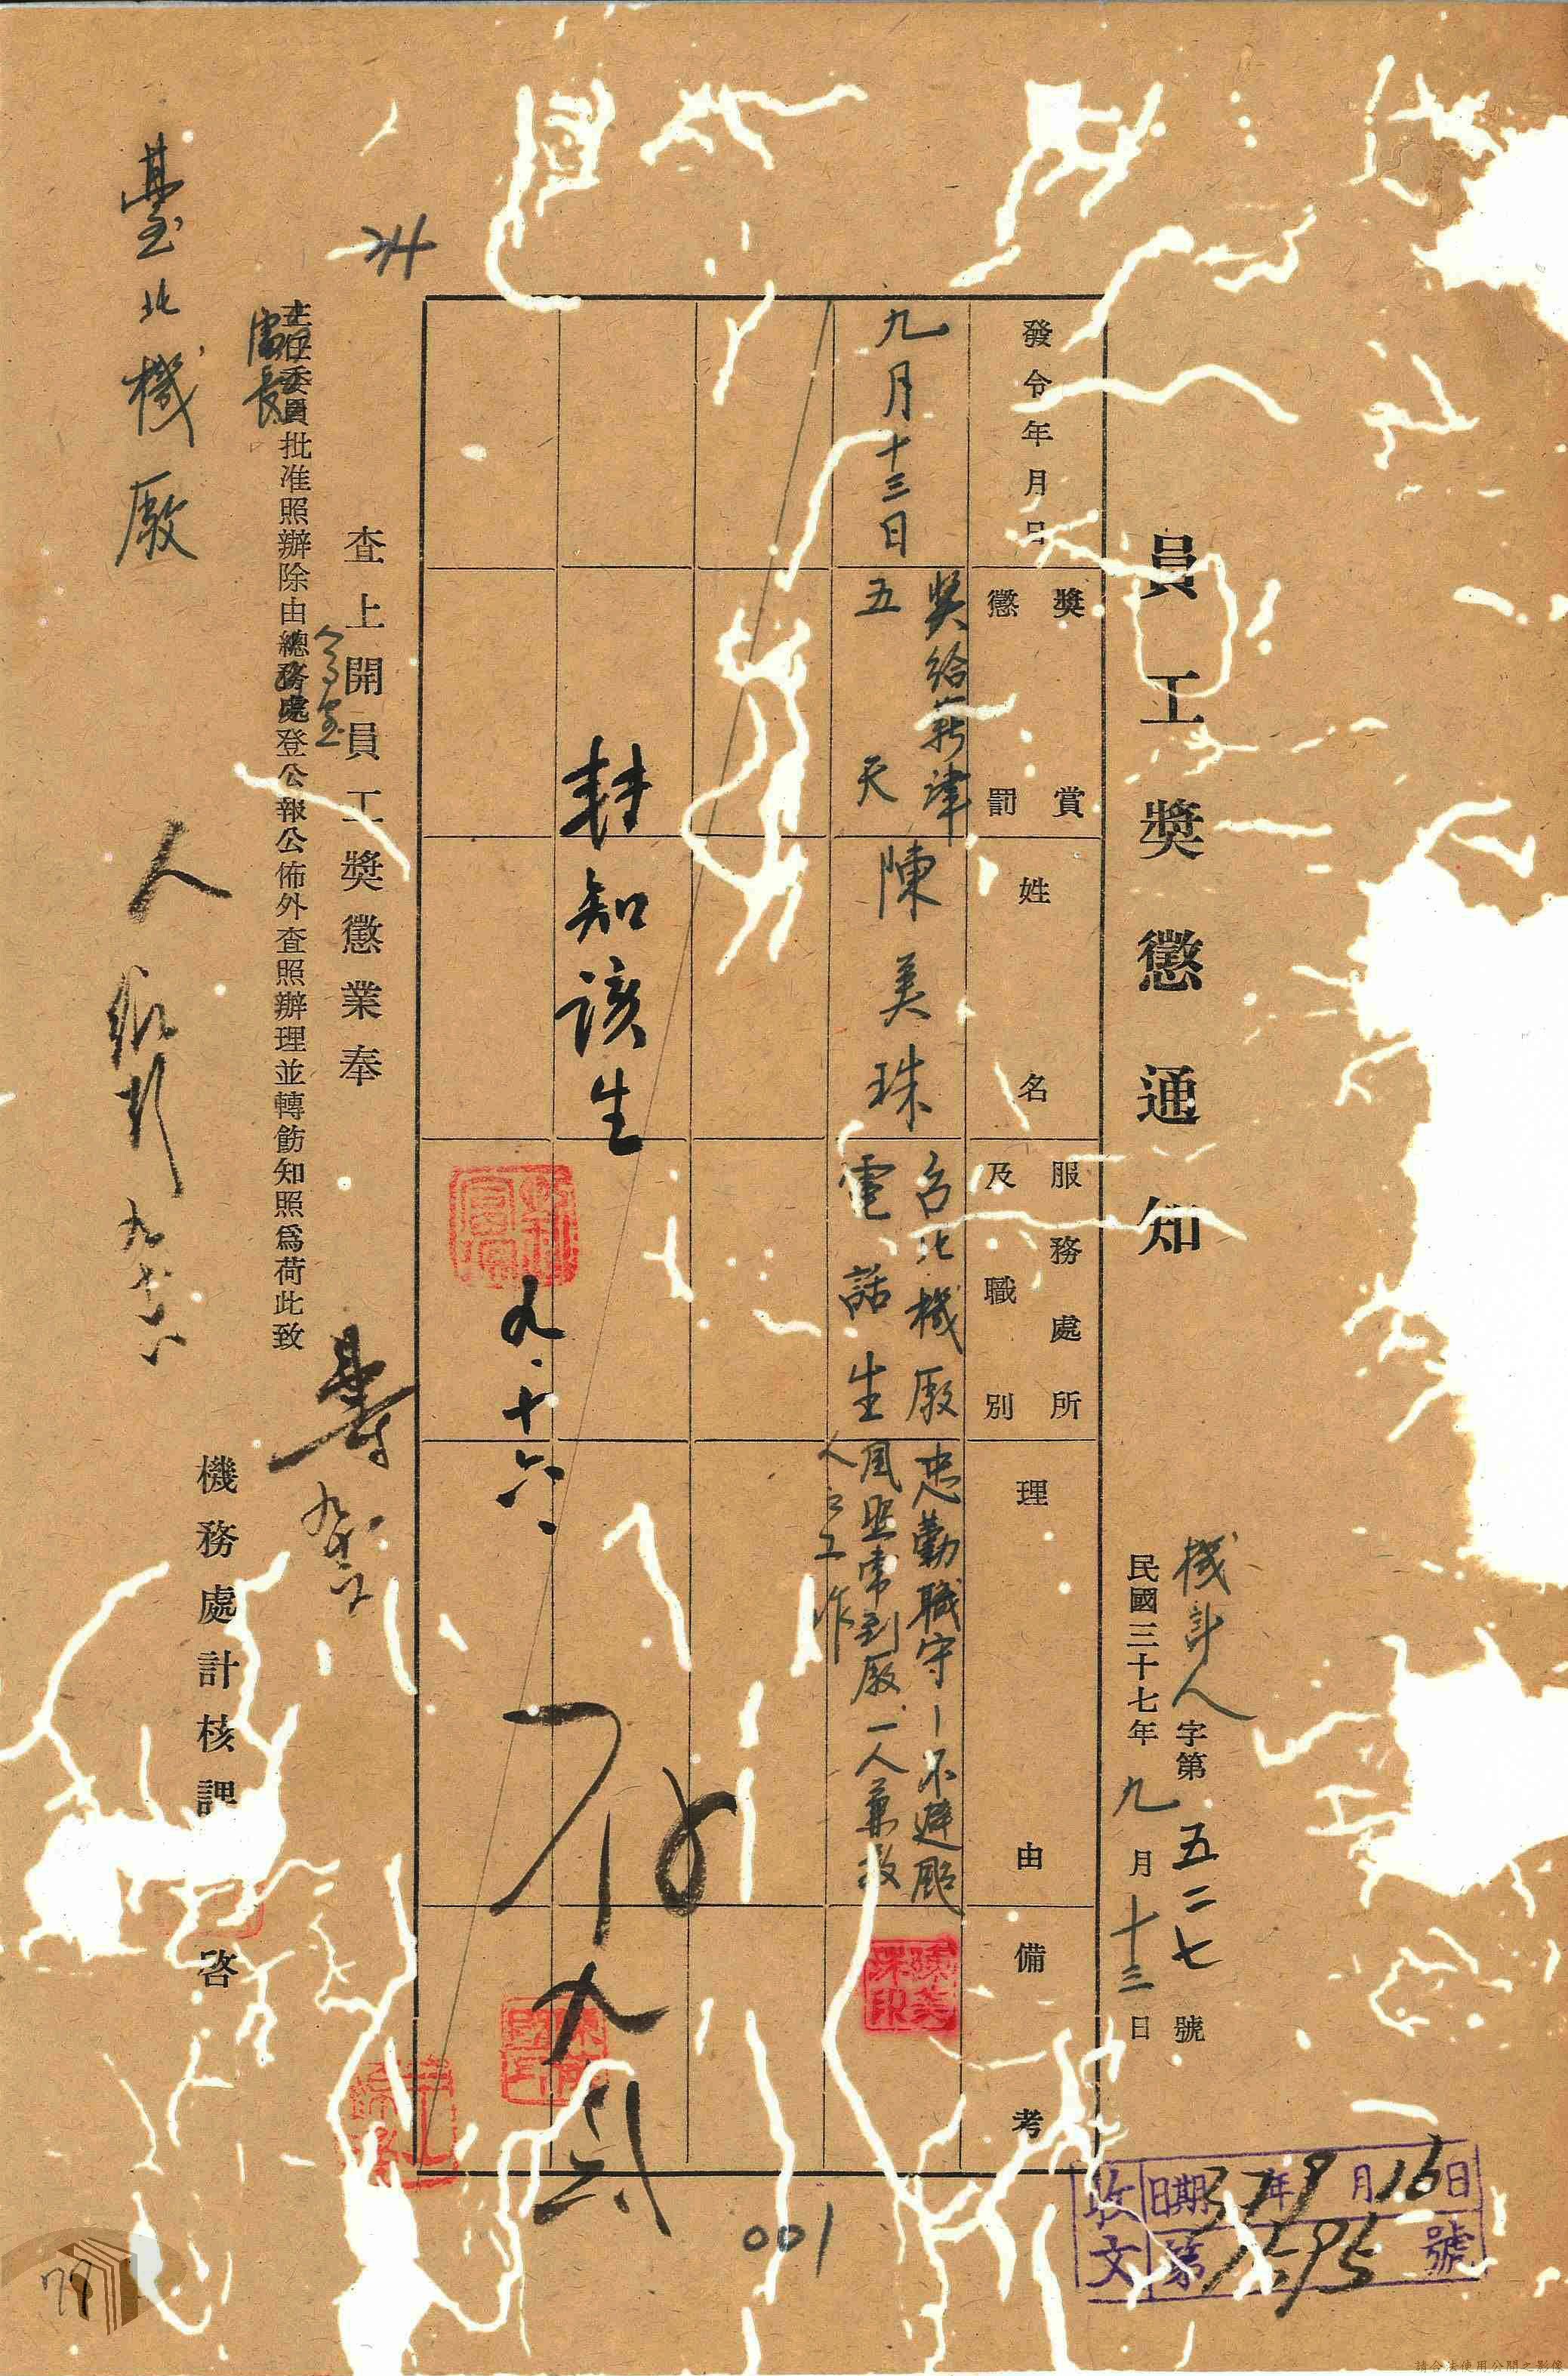 員工獎懲通知
機計人字第五二七號
民國三十七年九月十三日
發令年月日
獎賞
懲罰
姓名
服務處所
及職別
理由
備考
九月十三日
獎給薪津
五天
陳美珠
台北機廠
電話生
忠勤職守—不避颱
風照常到廠一人兼數
人之工作
陳美
珠印
轉知該生
九.十六.
查上開員工獎懲業奉
主任委員批准照辦除由總務處登公報公佈外查照辦理並轉飭知照為荷此致
局長
人事室
臺北機廠
機務處計核課
啓
收文
日期 37年9月16日
第1595號
001
79
請合法使用公開之影像